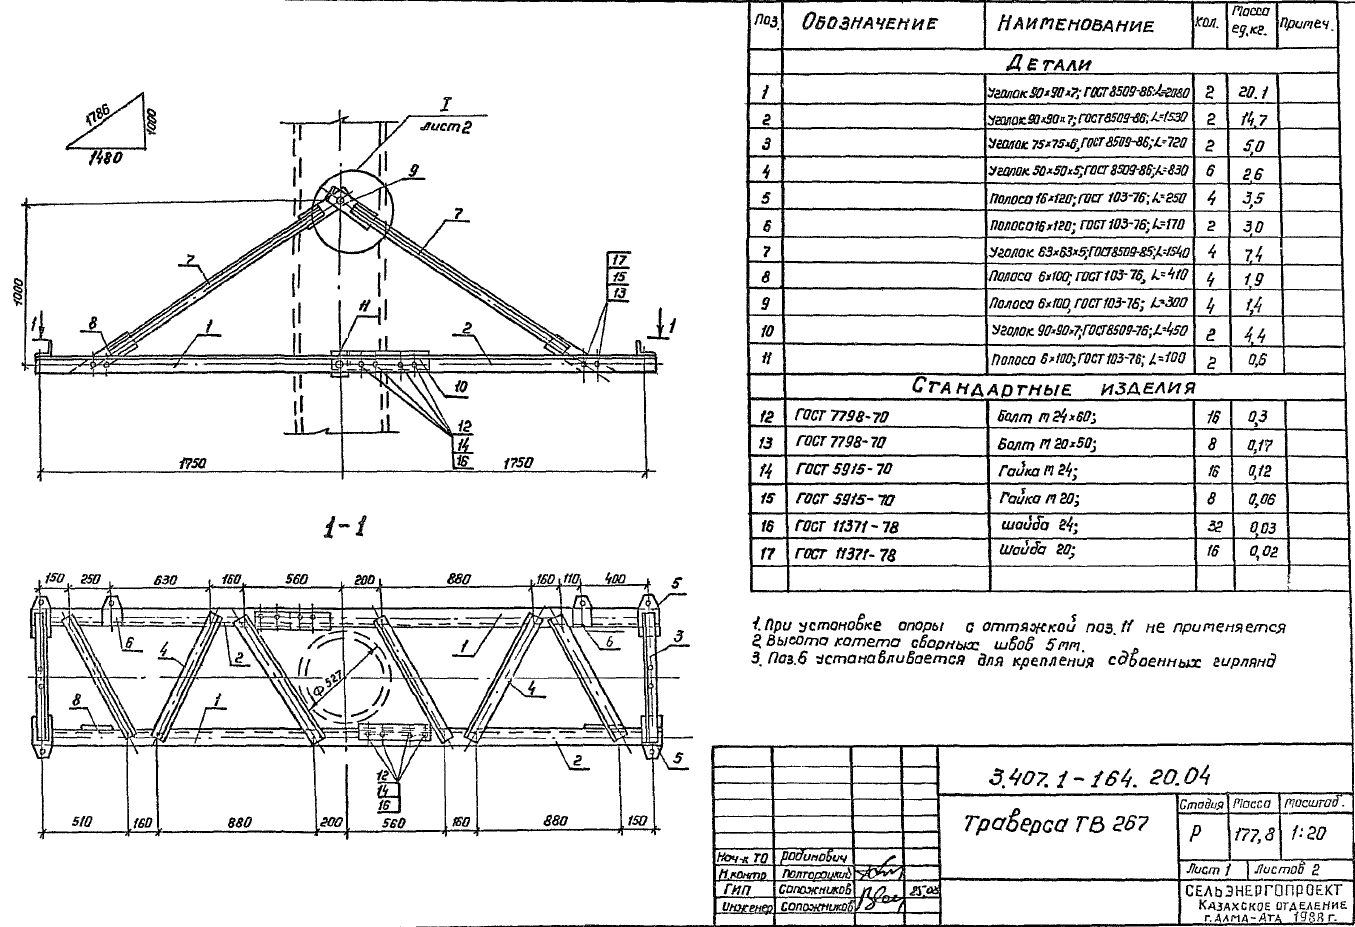 1786
1000
1480
I
лист 2
9
7
7
17
15
13
1000
1
8
1
11
2
1
10
12
14
16
1750
1750
1-1
150 250 630 160 560 200 880 160 110 400
5
6
4
2
1
6
3
Ф 527
4
8
1
2
5
12
14
16
510 160 880 200 560 160 880 150
Поз. Обозначение Наименование Кол. Масса ед.кг. Примеч.
Детали
1 Уголок 90×90×7; ГОСТ 8509-86; L=2080 2 20.1
2 Уголок 90×90×7; ГОСТ 8509-86; L=1530 2 14,7
3 Уголок 75×75×6, ГОСТ 8509-86; L=720 2 5,0
4 Уголок 50×50×5; ГОСТ 8509-86; L=830 6 2,6
5 Полоса 16×120; ГОСТ 103-76; L=250 4 3,5
6 Полоса 16×120; ГОСТ 103-76; L=170 2 3,0
7 Уголок 63×63×5; ГОСТ 8509-86; L=1540 4 7,4
8 Полоса 6×100; ГОСТ 103-76, L=410 4 1,9
9 Полоса 6×100, ГОСТ 103-76; L=300 4 1,4
10 Уголок 90×90×7; ГОСТ 8509-76; L=450 2 4,4
11 Полоса 6×100; ГОСТ 103-76; L=100 2 0,6
Стандартные изделия
12 ГОСТ 7798-70 Болт м 24×60; 16 0,3
13 ГОСТ 7798-70 Болт м 20×50; 8 0,17
14 ГОСТ 5915-70 Гайка м 24; 16 0,12
15 ГОСТ 5915-70 Гайка м 20; 8 0,06
16 ГОСТ 11371-78 шайба 24; 32 0,03
17 ГОСТ 11371-78 шайба 20; 16 0,02
1. При установке опоры с оттяжкой поз. 11 не применяется
2. Высота катета сварных швов 5мм.
3. Поз. 6 устанавливается для крепления сдвоенных гирлянд
3.407.1-164. 20.04
Траверса ТВ 267
Стадия Масса Масштаб.
Р 177,8 1:20
Лист 1 Листов 2
СЕЛЬЭНЕРГОПРОЕКТ
КАЗАХСКОЕ ОТДЕЛЕНИЕ
г. АЛМА-АТА 1988 г.
Нач-к ТО Родинович
Н.контр Полторацкий
ГИП Сапожников
Инженер Сапожников